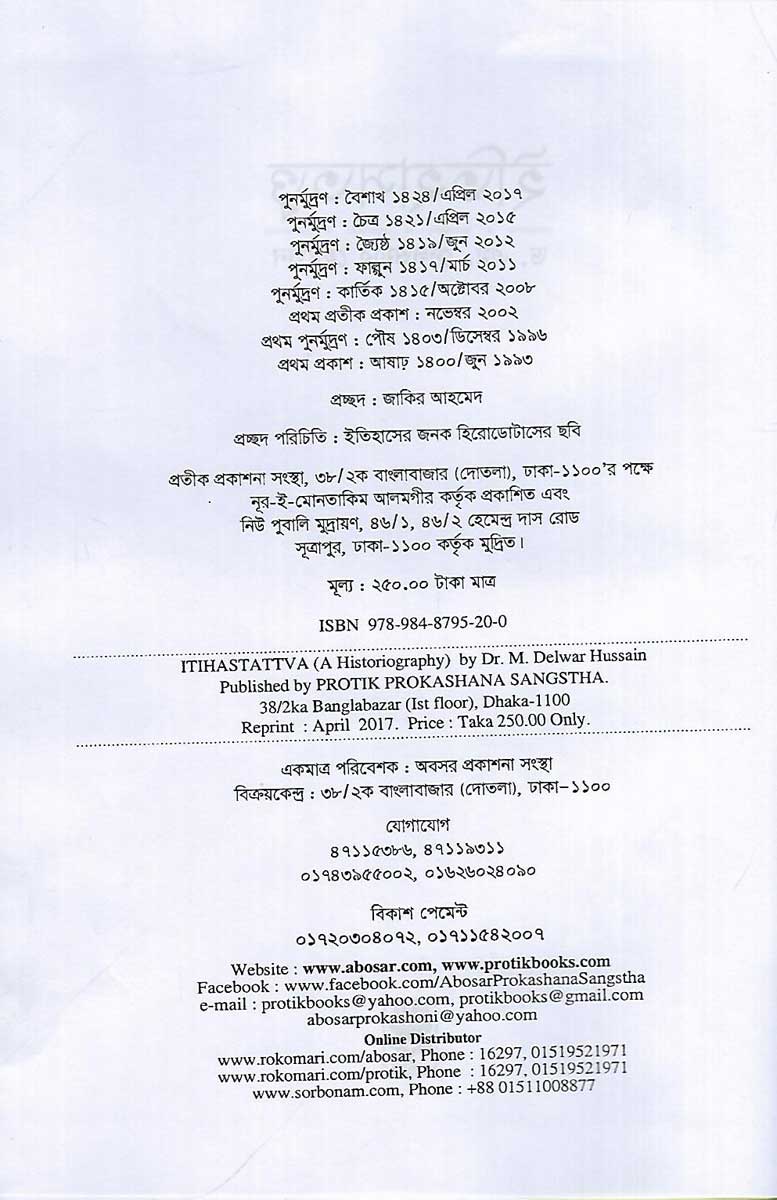 পুনর্মুদ্রণ : বৈশাখ ১৪২৪/এপ্রিল ২০১৭
পুনর্মুদ্রণ : চৈত্র ১৪২১/এপ্রিল ২০১৫
পুনর্মুদ্রণ : জ্যৈষ্ঠ ১৪১৯/জুন ২০১২
পুনর্মুদ্রণ : ফাল্গুন ১৪১৭/মার্চ ২০১১
পুনর্মুদ্রণ : কার্তিক ১৪১৫/অক্টোবর ২০০৮
প্রথম প্রতীক প্রকাশ : নভেম্বর ২০০২
প্রথম পুনর্মুদ্রণ : পৌষ ১৪০৩/ডিসেম্বর ১৯৯৬
প্রথম প্রকাশ : আষাঢ় ১৪০০/জুন ১৯৯৩
প্রচ্ছদ : জাকির আহমেদ
প্রচ্ছদ পরিচিতি : ইতিহাসের জনক হিরোডোটাসের ছবি
প্রতীক প্রকাশনা সংস্থা, ৩৮/২ক বাংলাবাজার (দোতলা), ঢাকা-১১০০'র পক্ষে
নূর-ই-মোনতাকিম আলমগীর কর্তৃক প্রকাশিত এবং
নিউ পুবালি মুদ্রায়ণ, ৪৬/১, ৪৬/২ হেমেন্দ্র দাস রোড
সূত্রাপুর, ঢাকা-১১০০ কর্তৃক মুদ্রিত।
মূল্য : ২৫০.০০ টাকা মাত্র
ISBN 978-984-8795-20-0
ITIHASTATTVA (A Historiography) by Dr. M. Delwar Hussain
Published by PROTIK PROKASHANA SANGSTHA.
38/2ka Banglabazar (Ist floor), Dhaka-1100
Reprint : April 2017. Price : Taka 250.00 Only.
একমাত্র পরিবেশক : অবসর প্রকাশনা সংস্থা
বিক্রয়কেন্দ্র : ৩৮/২ক বাংলাবাজার (দোতলা), ঢাকা–১১০০
যোগাযোগ
৪৭১১৫৩৮৬, ৪৭১১৯৩১১
০১৭৪৩৯৫৫০০২, ০১৬২৬০২৪০৯০
বিকাশ পেমেন্ট
০১৭২০৩০৪০৭২, ০১৭১১৫৪২০০৭
Website : www.abosar.com, www.protikbooks.com
Facebook : www.facebook.com/AbosarProkashanaSangstha
e-mail : protikbooks@yahoo.com, protikbooks@gmail.com
abosarprokashoni@yahoo.com
Online Distributor
www.rokomari.com/abosar, Phone : 16297, 01519521971
www.rokomari.com/protik, Phone : 16297, 01519521971
www.sorbonam.com, Phone : +88 01511008877